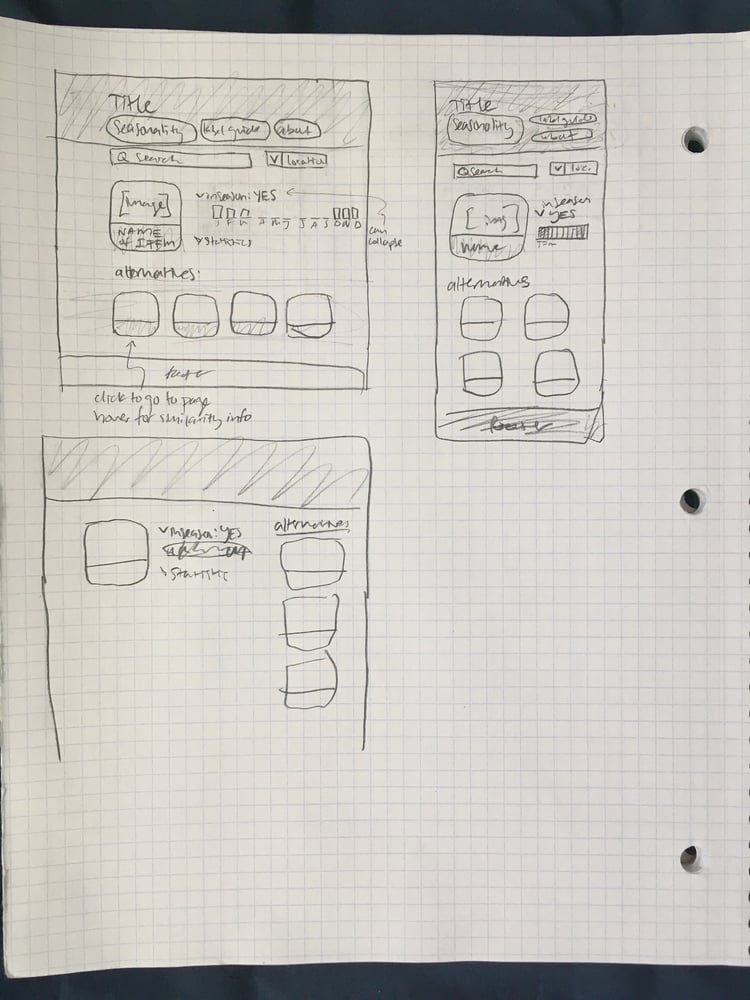 Title
Seasonality label guide about
Search
location
[image]
NAME
of ITEM
in season: YES
J F M A M J J A S O N D
statistics
can
collapse
alternatives:
footer
click to go to page
hover for similarity info
Title
Seasonality
label guide
about
Search
loc.
[img]
name
in season
YES
alternatives
footer
in season: YES
statistic
alternatives